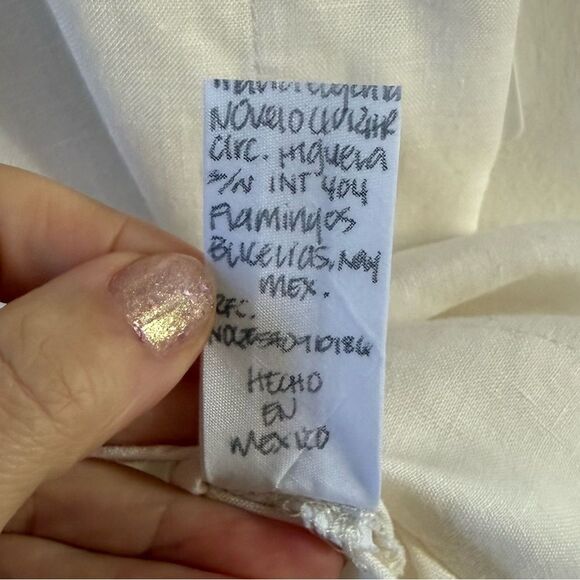 NOVELO
CIRC. HIGUERA
S/N INT 404
FlAMINgOS
BUCERIAS, NAY
MEX.
RFC.
HECHO
EN
MEXICO